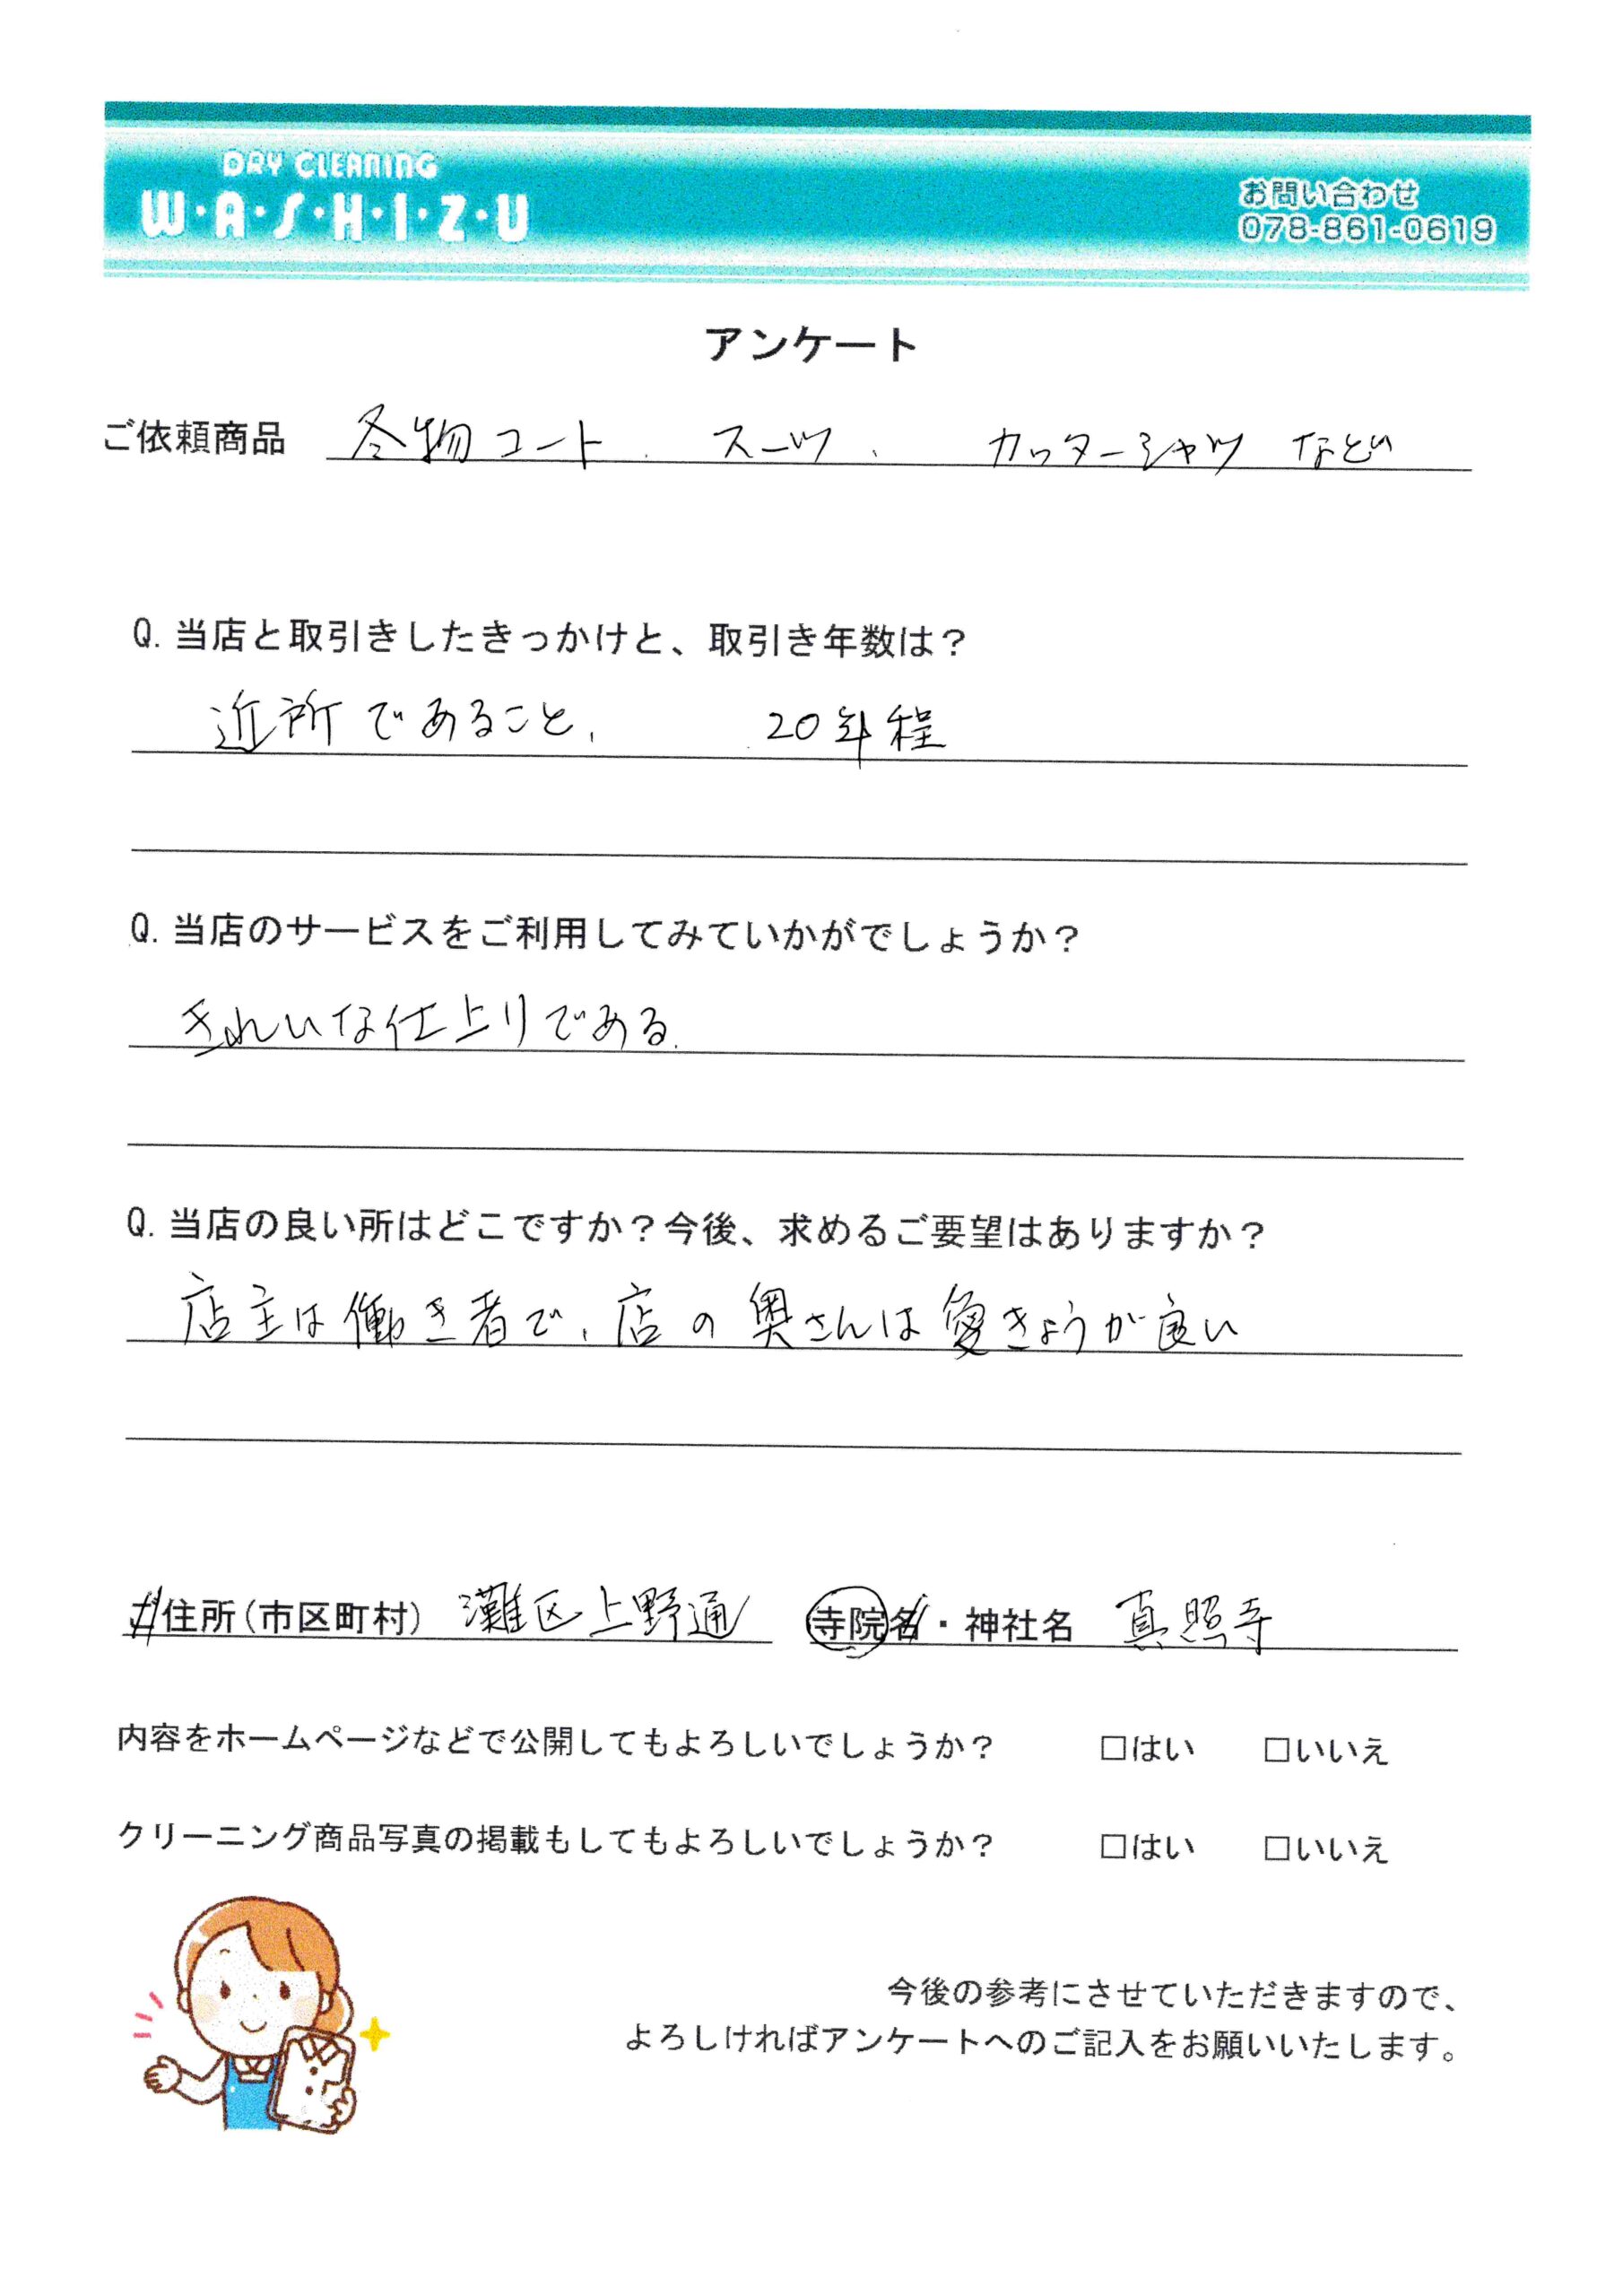 DRY CLEANING
W・A・S・H・I・Z・U
お問い合わせ
078-861-0619
アンケート
ご依頼商品 冬物コート、スーツ、カッターシャツ など
Q. 当店と取引きしたきっかけと、取引き年数は？
近所であること、 20年程
Q. 当店のサービスをご利用してみていかがでしょうか？
きれいな仕上りである.
Q. 当店の良い所はどこですか？今後、求めるご要望はありますか？
店主は働き者で、店の奥さんは愛きょうが良い
ご住所(市区町村) 灘区上野通 寺院名・神社名 真照寺
内容をホームページなどで公開してもよろしいでしょうか？ □はい □いいえ
クリーニング商品写真の掲載もしてもよろしいでしょうか？ □はい □いいえ
今後の参考にさせていただきますので、
よろしければアンケートへのご記入をお願いいたします。